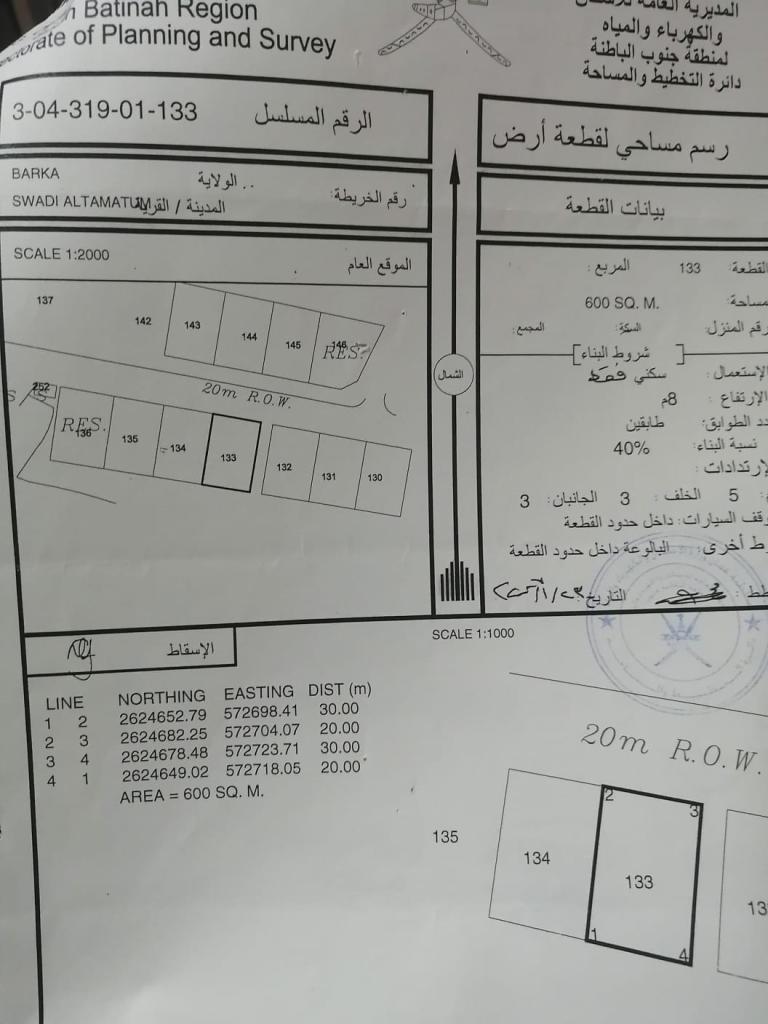 Batinah Region
of Planning and Survey
المديرية العامة للاسكان
والكهرباء والمياه
لمنطقة جنوب الباطنة
دائرة التخطيط والمساحة
3-04-319-01-133 الرقم المسلسل
رسم مساحي لقطعة أرض
BARKA الولاية
SWADI ALTAMATUM المدينة / القرية
رقم الخريطة:
بيانات القطعة
SCALE 1:2000 الموقع العام
137
142
143
144
145
146
RES.
20m R.O.W.
252
RES.
136
135
134
133
132
131
130
الشمال
القطعة: 133 المربع:
مساحة: 600 SQ. M.
رقم المنزل: السكة: المجمع:
شروط البناء
الإستعمال: سكني فقط
الإرتفاع: 8م
دد الطوابق: طابقين
نسبة البناء: 40%
إرتدادات:
5 الخلف: 3 الجانبان: 3
وقف السيارات: داخل حدود القطعة
أخرى: البالوعة داخل حدود القطعة
التاريخ:
الإسقاط
SCALE 1:1000
LINE NORTHING EASTING DIST (m)
1 2 2624652.79 572698.41 30.00
2 3 2624682.25 572704.07 20.00
3 4 2624678.48 572723.71 30.00
4 1 2624649.02 572718.05 20.00
AREA = 600 SQ. M.
20m R.O.W.
135
134
2
3
133
1
4